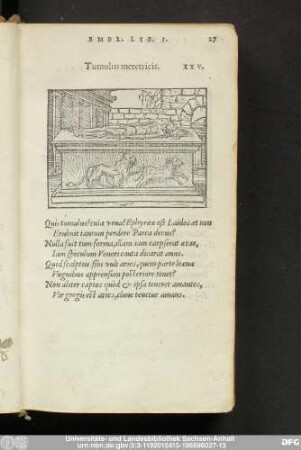 EMBL. LIB. I. 27
Tumulus meretricis. XXV.
Quis tumulus? cuia urna? Ephyrææ est Laidos. at non
Erubuit tantum perdere Parca decus?
Nulla fuit tum forma, illam iam carpserat ætas,
Iam speculum Veneri cauta dicarat anus.
Quid scalptus sibi vult aries, quem parte leæna
Vnguibus apprensum posteriore tenet?
Non aliter captos quòd & ipsa teneret amantes,
Vir gregis est aries, clune tenetur amans.
Universitäts- und Landesbibliothek Sachsen-Anhalt
urn:nbn:de:gbv:3:3-1192015415-186696027-13
DFG